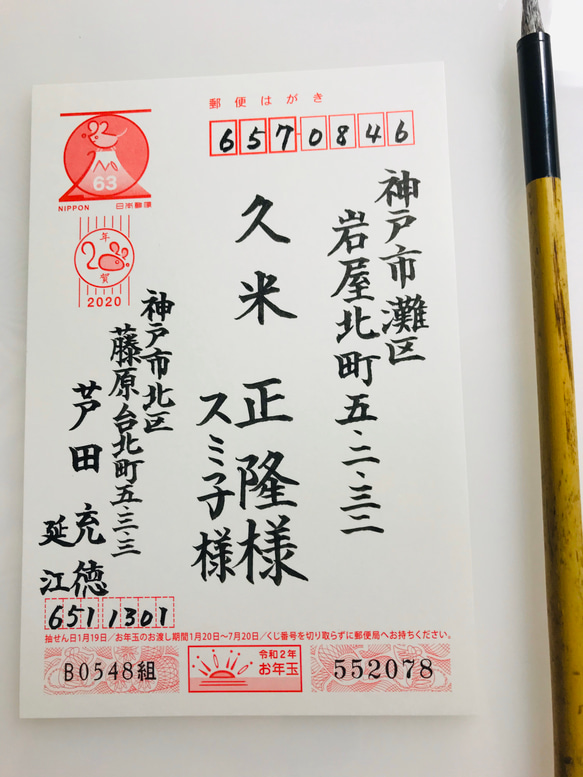 郵便はがき
6570846
神戸市灘区
岩屋北町五、二、三二
久米 正隆様
スミ子様
63
NIPPON 日本郵便
年賀
2020
神戸市北区
藤原台北町五、三、三
芦田 充徳
延江
6511301
抽せん日1月19日／お年玉のお渡し期間1月20日～7月20日／くじ番号を切り取らずに郵便局へお持ちください。
B0548組
令和2年
お年玉
552078